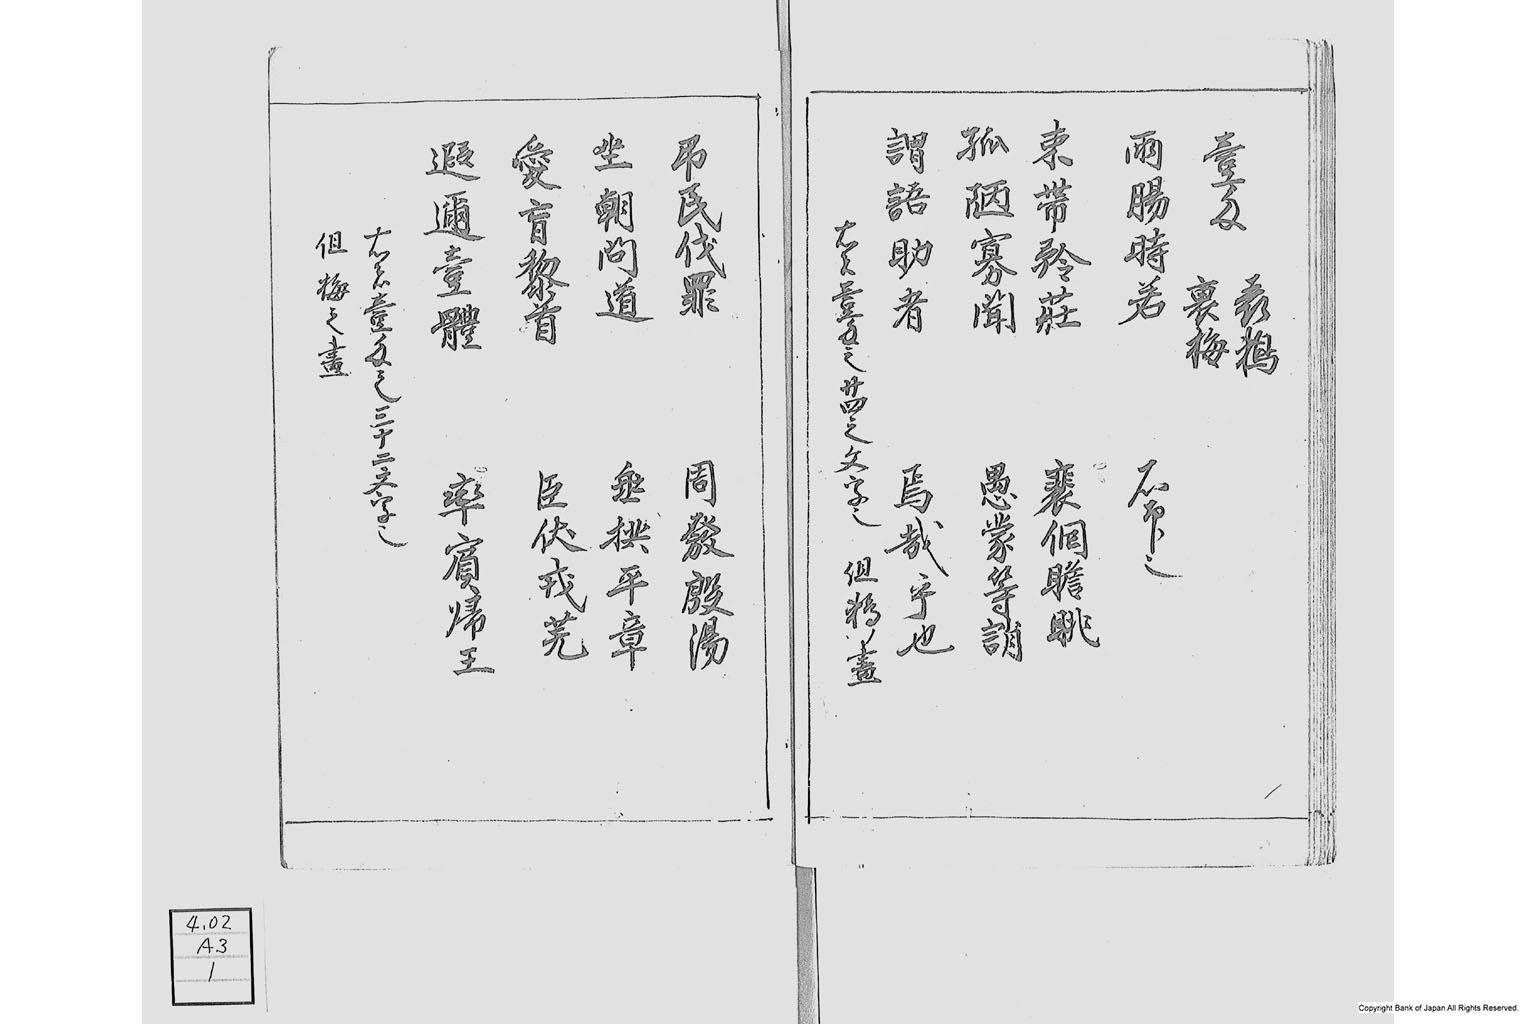 壹匁
表鶴
裏梅
雨腸時若
束帯矜莊 裴個瞻眺
孤陋寡聞 愚蒙等誚
謂語助者 焉哉乎也
右者壹匁之廿四之文字之 但鶴ノ畫
吊民伐罪 周發殷湯
坐朝問道 垂拱平章
愛育黎首 臣伏戎羌
遐邇壹體 率賓帰王
右者壹匁之三十二文字之
但梅之畫
4.02
A3
1
Copyright Bank of Japan All Rights Reserved.